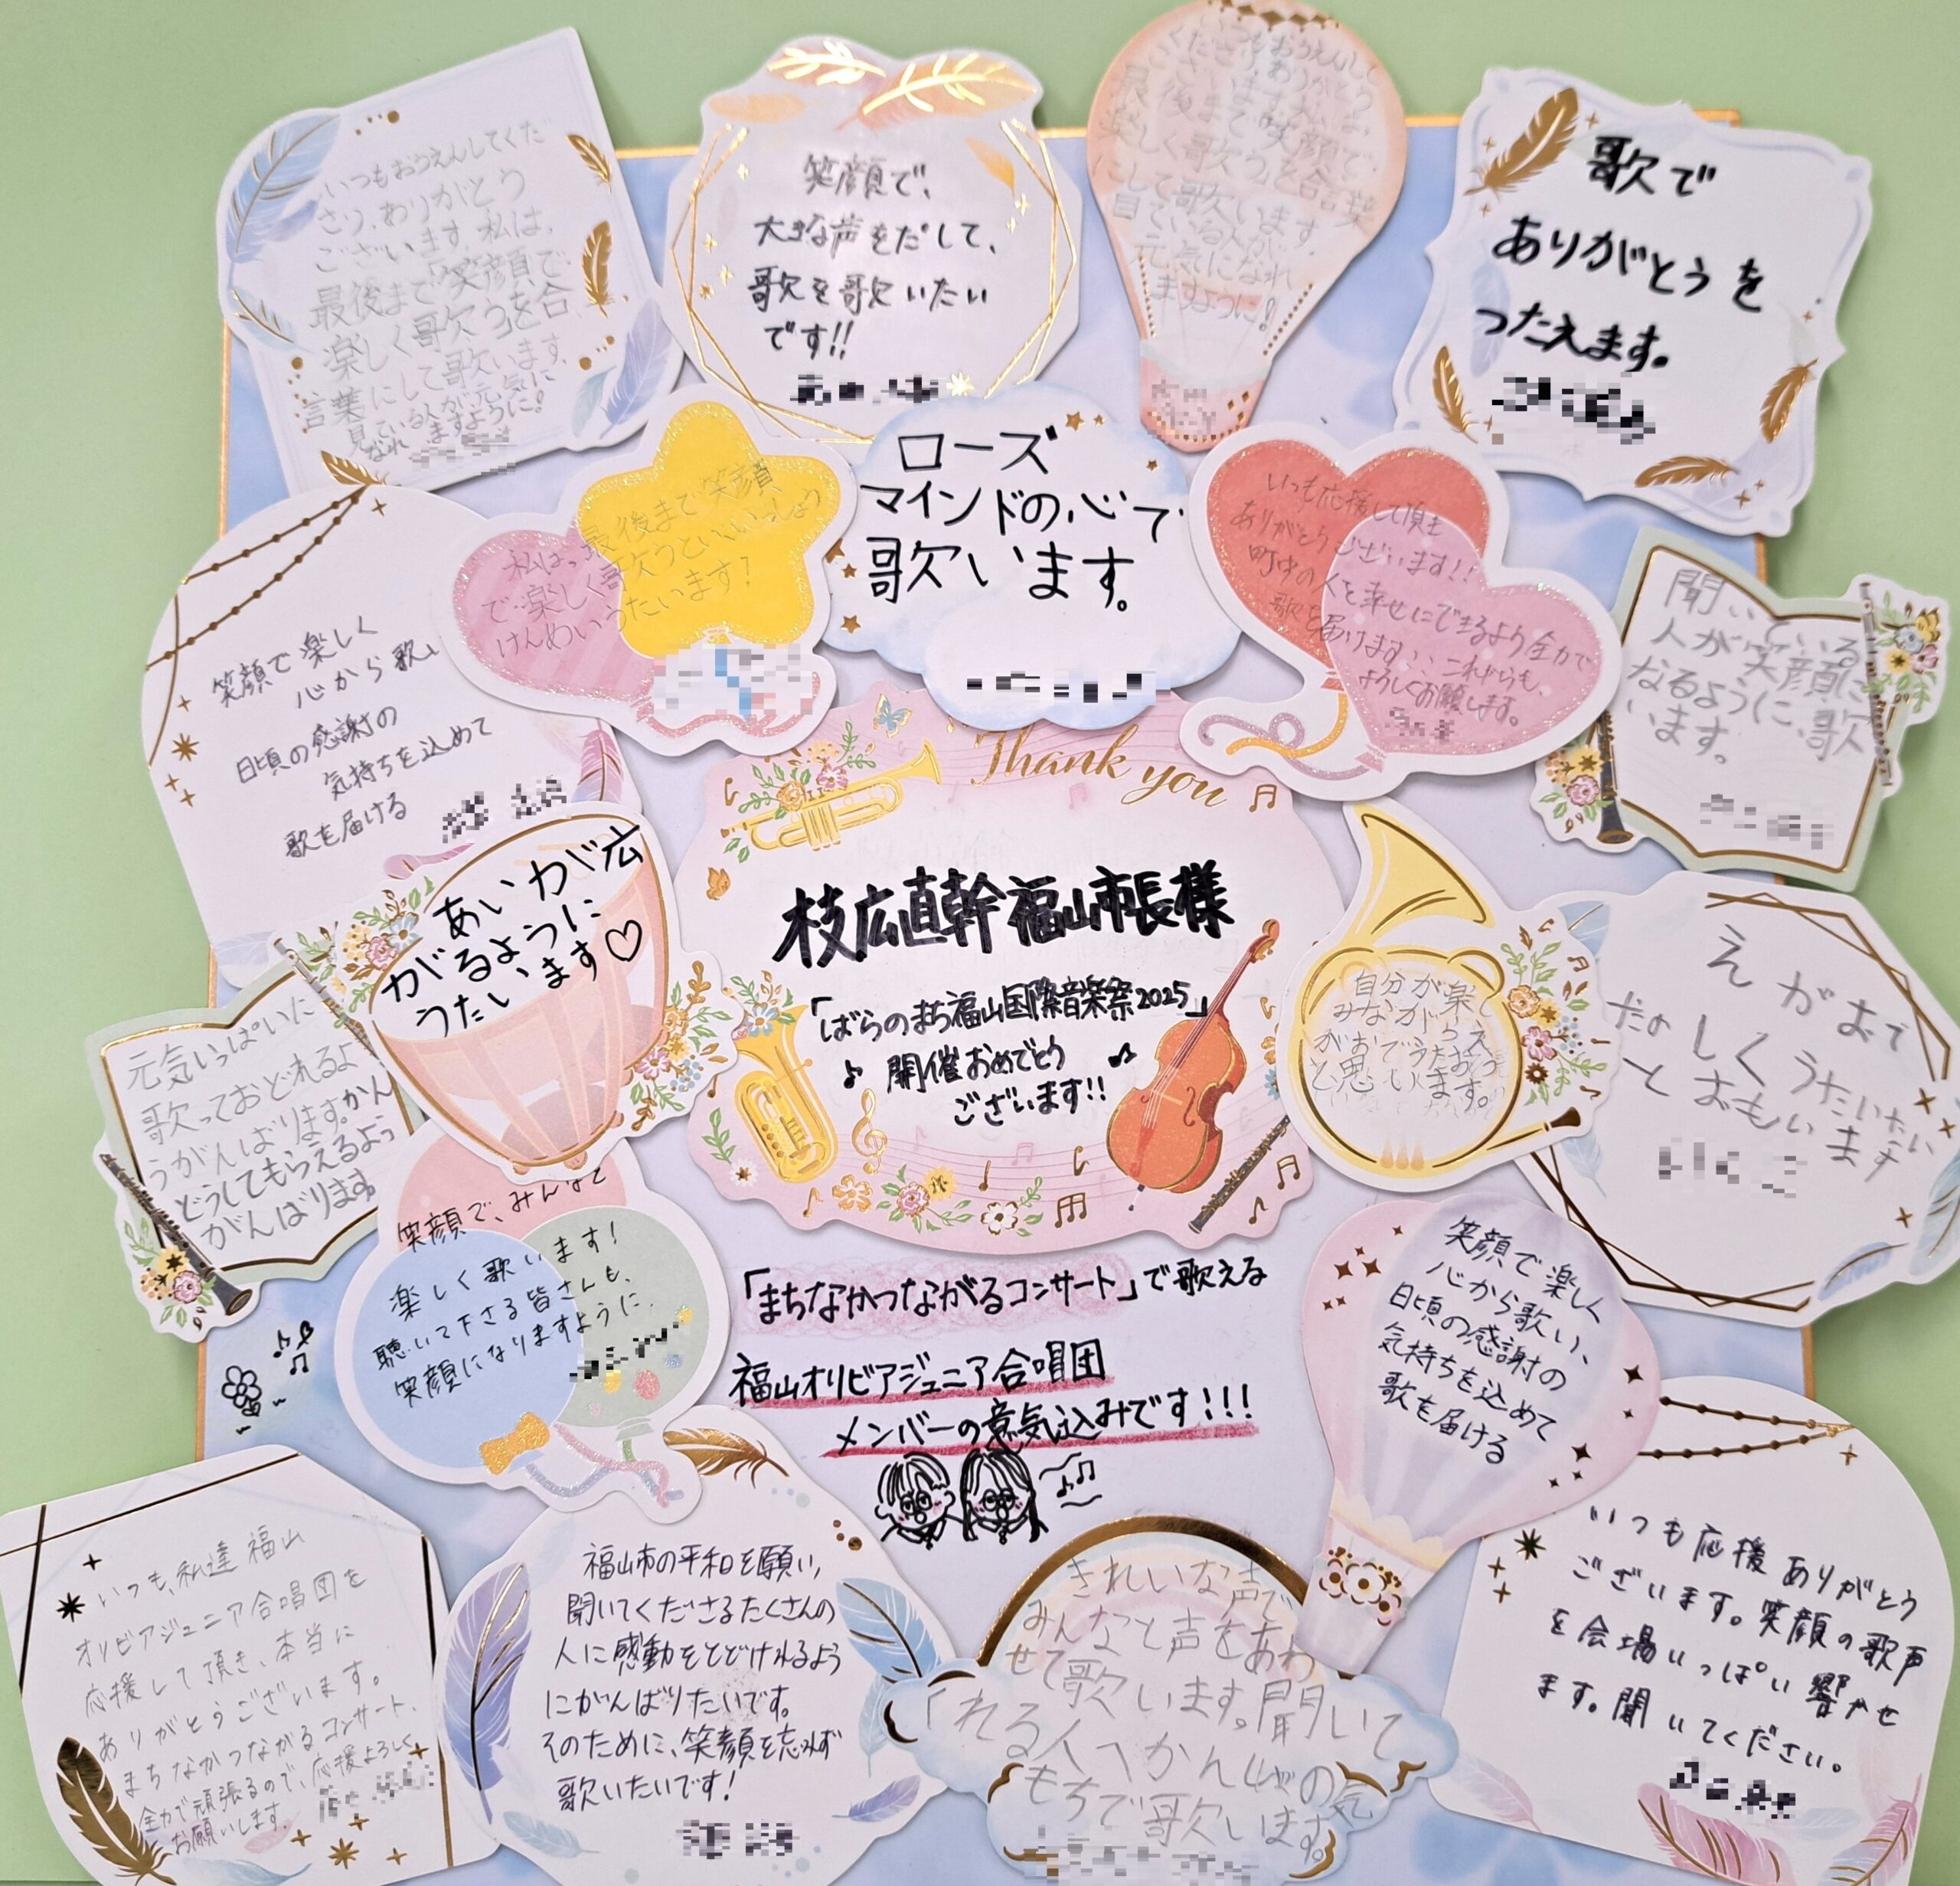 いつもおうえんしてくだ
さり、ありがとう
ございます。私は、
最後まで「笑顔で
楽しく歌う」を合
言葉にして歌います。
見ている人が元気に
なれますように!
笑顔で、
大きな声をだして、
歌を歌いたい
です!!
いつもおうえんして
くださりありがとう
ございます。
最後まで「笑顔で、
楽しく歌う」を合言葉
にして歌います。
見ている人が
元気になれ
ますように!
歌で
ありがとうを
つたえます。
私は、最後まで笑顔
で楽しく歌うといいっしょう
けんめいうたいます!
ローズ
マインドの心で
歌います。
いつも応援して頂き
ありがとうございます!!
町中の人を幸せにできるよう全力で
歌を届けます、、これからも、
よろしくお願します。
聞いている
人が笑顔に
なるように、歌
います。
笑顔で楽しく
心から歌い
日頃の感謝の
気持ちを込めて
歌を届ける
あいが広
がるように
うたいます♡
Thank you
枝広直幹福山市長様
「ばらのまち福山国際音楽祭2025」
♪ 開催おめでとう ♫
ございます!!
自分が楽しく
みながらえ
がおでうたおう
と思います。
えがおで
たのしくうたいたい
とおもいます
元気いっぱいに
歌っておどれるよ
うがんばります。かん
どうしてもらえるよう
がんばります
笑顔で、みんなで
楽しく歌います!
聴いて下さる皆さんも、
笑顔になりますように。
「まちなかつながるコンサート」で歌える
福山オリビアジュニア合唱団
メンバーの意気込みです!!!
笑顔で楽しく
心から歌い、
日頃の感謝の
気持ちを込めて
歌を届ける
いつも、私達福山
オリビアジュニア合唱団を
応援して頂き、本当に
ありがとうございます。
まちなかつながるコンサート、
全力で頑張るので、応援よろしく
お願いします。
福山市の平和を願い、
聞いてくださるたくさんの
人に感動をとどけれるよう
にがんばりたいです。
そのために、笑顔を忘れず
歌いたいです!
きれいな声で
みんなと声をあわ
せて歌います。聞いて
くれる人へかんしゃの気
もちで歌います。
いつも応援ありがとう
ございます。笑顔の歌声
を会場いっぱい響かせ
ます。聞いてください。